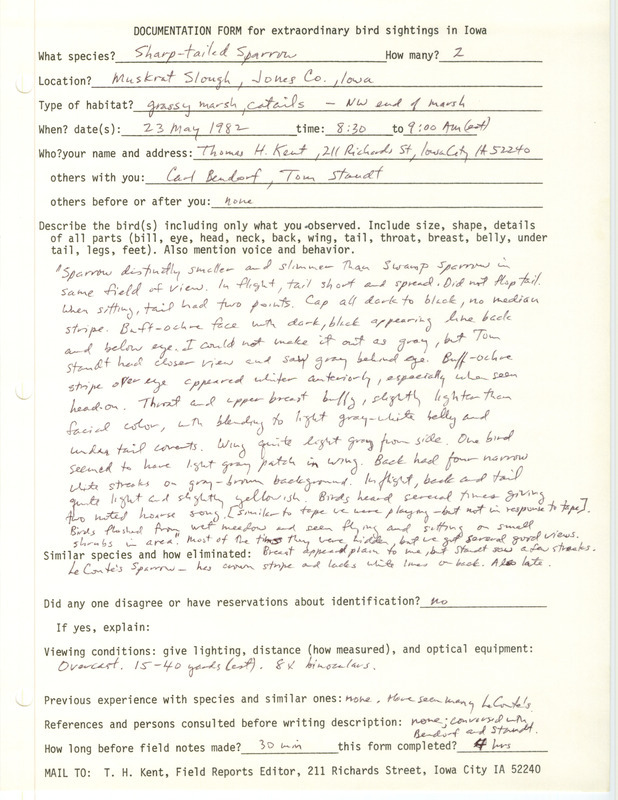 DOCUMENTATION FORM for extraordinary bird sightings in Iowa
What species? Sharp-tailed Sparrow How many? 2
Location? Muskrat Slough, Jones Co., Iowa
Type of habitat? grassy marsh, cattails – NW end of marsh
When? date(s): 23 May 1982 time: 8:30 to 9:00 AM (est)
Who?your name and address: Thomas H. Kent, 211 Richards St, Iowa City IA 52240
others with you: Carl Bendorf, Tom Staudt
others before or after you: none
Describe the bird(s) including only what you observed. Include size, shape, details
of all parts (bill, eye, head, neck, back, wing, tail, throat, breast, belly, under
tail, legs, feet). Also mention voice and behavior.
"Sparrow distinctly smaller and slimmer than Swamp Sparrow in
same field of view. In flight, tail short and spread. Did not flap tail.
When sitting, tail had two points. Cap all dark to black, no median
stripe. Buff-ochre face with dark, black appearing line back
and below eye. I could not make it out as gray, but Tom
Staudt had closer view and saw gray behind eye. Buff-ochre
stripe over eye appeared whiter anteriorly, especially when seen
head-on. Throat and upper breast buffy, slightly lighter than
facial color, with blending to light gray-white belly and
under tail coverts. Wing quite light gray from side. One bird
seemed to have light gray patch in wing. Back had four narrow
white streaks on gray-brown background. In flight, back and tail
quite light and slightly yellowish. Birds heard several times giving
two noted hoarse song [similar to tape we were playing – but not in response to tape].
Birds flushed from wet meadow and seen flying and sitting on small
shrubs in area." Most of the time they were hidden, but we got several good views.
Similar species and how eliminated: Breast appeared plain to me, but Staudt saw a few streaks.
LeConte's Sparrow – has crown stripe and lacks white lines on back. Also late.
Did any one disagree or have reservations about identification? no
If yes, explain:
Viewing conditions: give lighting, distance (how measured), and optical equipment:
Overcast. 15-40 yards (est). 8x binoculars.
Previous experience with species and similar ones: none. Have seen many LeConte's
References and persons consulted before writing description: none; conversed with
Bendorf and Staudt.
How long before field notes made? 30 min this form completed? 4 hrs
MAIL TO: T. H. Kent, Field Reports Editor, 211 Richards Street, Iowa City IA 52240